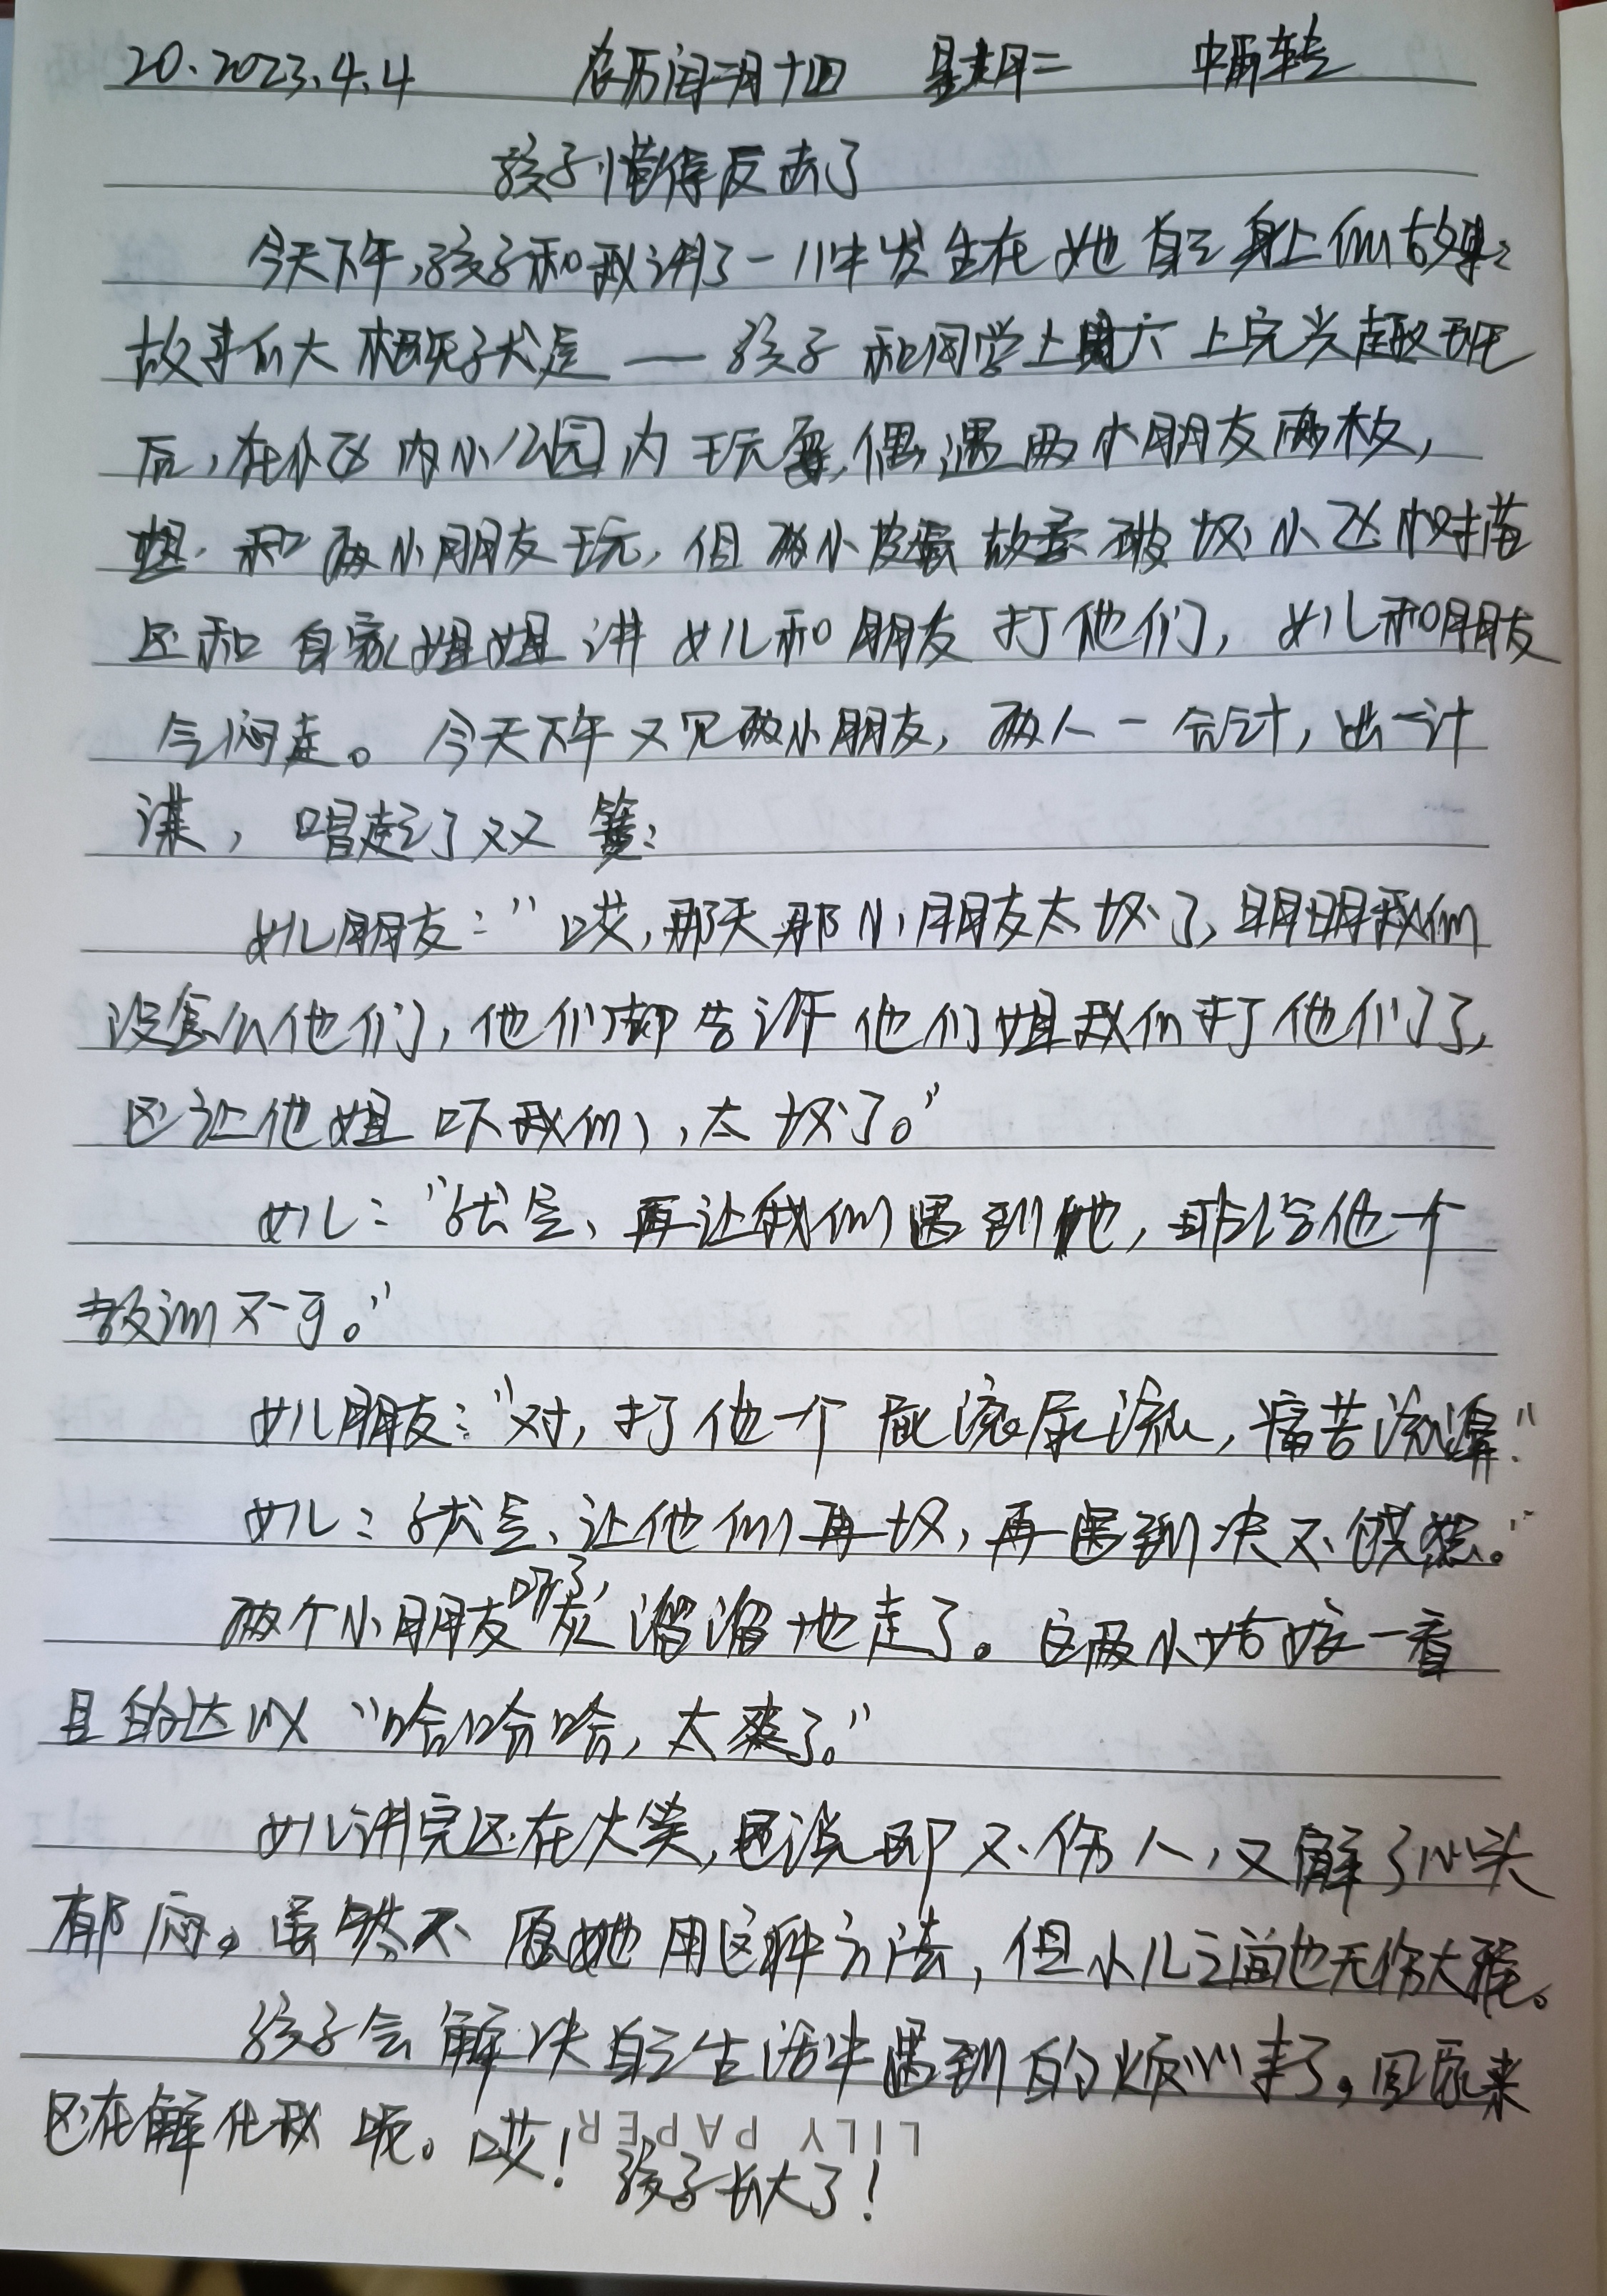 20.2023.4.4 农历闰二月十四 星期二 中雨转
孩子懂得反击了
今天下午,孩子和我讲了一件发生在她自己身上的故事:
故事的大概就是——孩子和同学上周六上完兴趣班
后,在小区内小公园内玩耍,偶遇两小朋友两枚,
和两小朋友玩,但两小皮蛋故意破坏小区
还和自家姐姐讲女儿和朋友打他们,女儿和朋友
气闷走。今天下午又见两小朋友,两人一合计,出一计
谋,唱起了双簧:
女儿朋友:"哎,那天那小朋友太坏了,明明我们
没怎么他们,他们却告诉他们姐我们打他们了,
还让他姐吓我们,太坏了。"
女儿:"就是、再让我们遇到他,非给他一个
教训不可。"
女儿朋友:"对,打他一个屁滚尿流,痛苦流涕."
女儿:就是、让他们再坏,再遇到决不饶恕。"
两个小朋友吓了,灰溜溜地走了。这两小姑娘一看
目的达以"哈哈哈,太爽了。"
女儿讲完还在大笑,还说即不伤人,又解了心头
郁闷。虽然不愿她用这种方法,但小儿之间也无伤大雅。
孩子会解决自己生活中遇到的烦心事了。回家来
还在解化我呢。哎!孩子长大了!
LILY PAPER